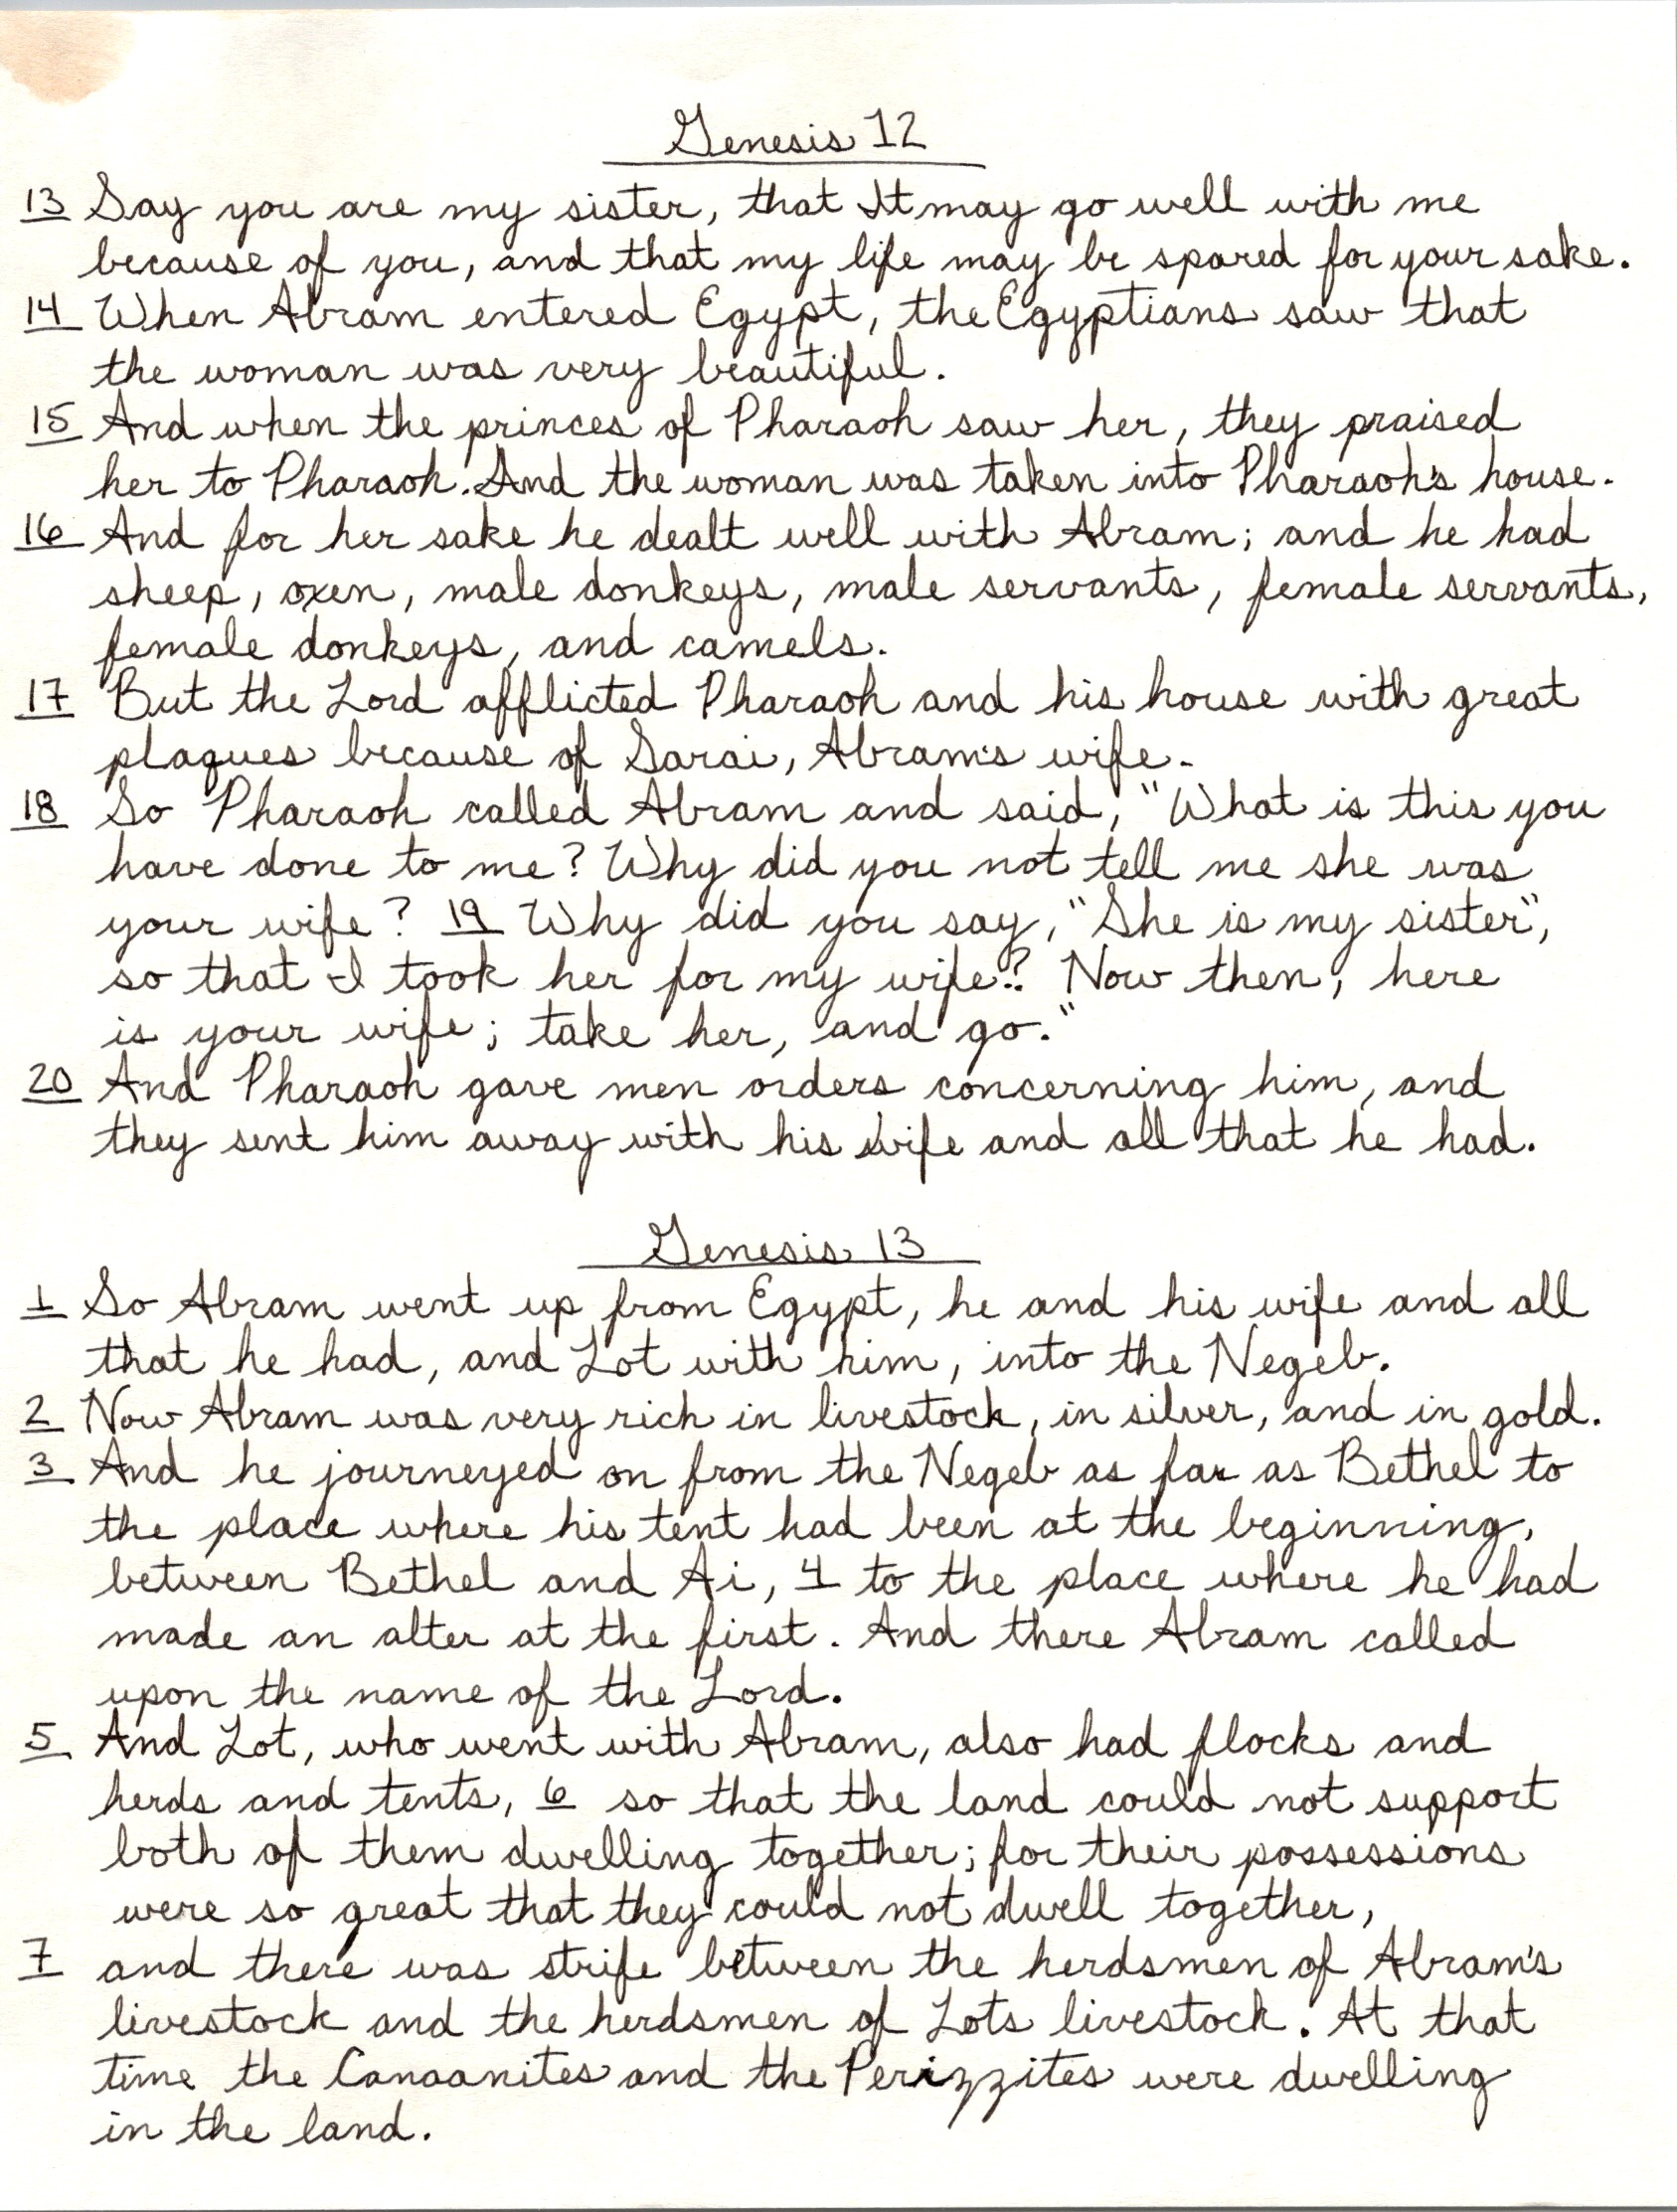 Genesis 12
13 Say you are my sister, that It may go well with me
because of you, and that my life may be spared for your sake.
14 When Abram entered Egypt, the Egyptians saw that
the woman was very beautiful.
15 And when the princes of Pharaoh saw her, they praised
her to Pharaoh. And the woman was taken into Pharaoh's house.
16 And for her sake he dealt well with Abram; and he had
sheep, oxen, male donkeys, male servants, female servants,
female donkeys, and camels.
17 But the Lord afflicted Pharaoh and his house with great
plagues because of Sarai, Abram's wife.
18 So Pharaoh called Abram and said, "What is this you
have done to me? Why did you not tell me she was
your wife? 19 Why did you say, "She is my sister",
so that I took her for my wife? Now then, here
is your wife; take her, and go."
20 And Pharaoh gave men orders concerning him, and
they sent him away with his wife and all that he had.
Genesis 13
1 So Abram went up from Egypt, he and his wife and all
that he had, and Lot with him, into the Negeb.
2 Now Abram was very rich in livestock, in silver, and in gold.
3 And he journeyed on from the Negeb as far as Bethel to
the place where his tent had been at the beginning,
between Bethel and Ai, 4 to the place where he had
made an alter at the first. And there Abram called
upon the name of the Lord.
5 And Lot, who went with Abram, also had flocks and
herds and tents, 6 so that the land could not support
both of them dwelling together; for their possessions
were so great that they could not dwell together,
7 and there was strife between the herdsmen of Abram's
livestock and the herdsmen of Lots livestock. At that
time the Canaanites and the Perizzites were dwelling
in the land.